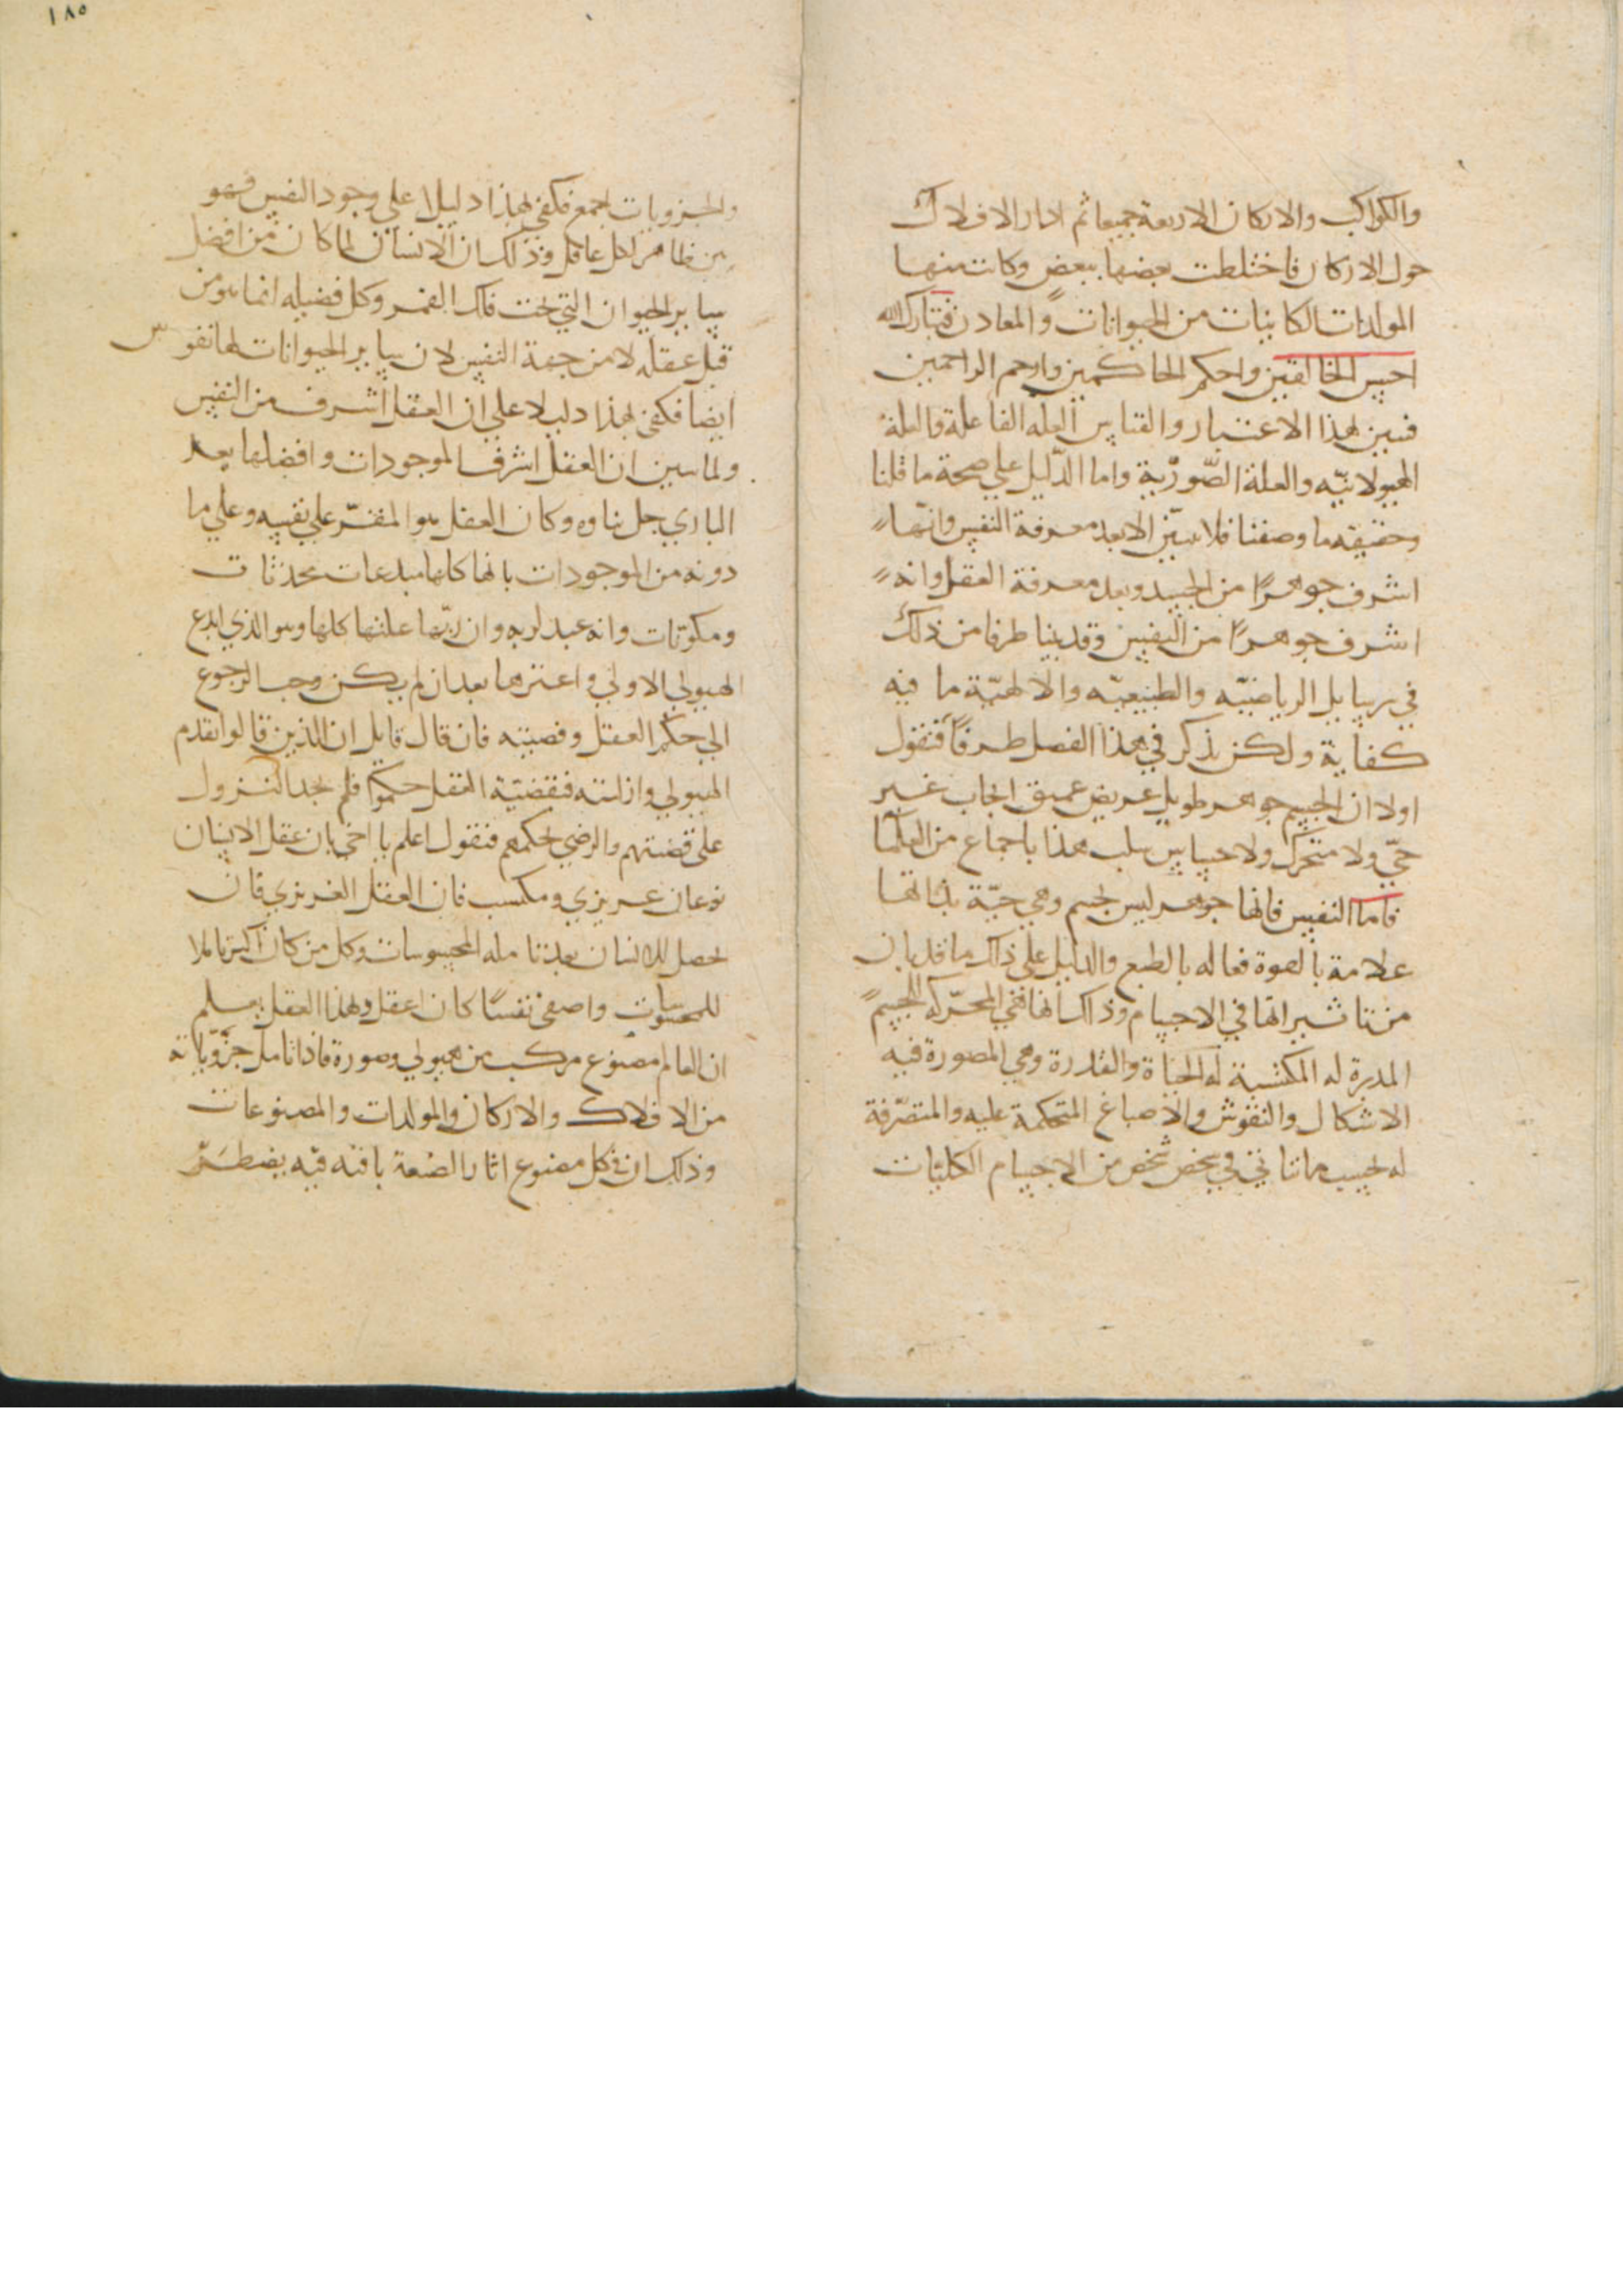 والكواكب والاركان الاربعة جميعا ثم ادار الافلاك
حول الاركان فاختلطت بعضها ببعض وكانت منها
المولدات الكاينات من الحيوانات والمعادن فتبارك الله
احسن الخالقين واحكم الحاكمين وارحم الراحمين
فتبين بهذا الاعتبار والقياس العله الفاعلة والعلة
الهيولانيّه والعلة الصّوريّة واما الدّليل علي صحة ما قلنا
وحقيقه ما وصفنا فلا يتبيّن الا بعد معرفة النفس وانّها
اشرف جوهرًا من الجسد وبعد معرفة العقل وانه
اشرف جوهرًا من النفس وقد بينا طرفا من ذلك
في رسايل الرياضيّه والطبيعيّه والالهيّة ما فيه
كفاية ولكن نذكر في هذا الفصل طرفًا فنقول
اولا ان الجسم جوهر طويل عريض عميق الجاب غير
حيّ ولا متحرك ولا حساس سلب هذا باجماع من العلما
فاما النفس فانها جوهر ليس بجسم وهي حيّة بذاتها
علامة بالقوة فعاله بالطبع والدليل علي ذلك ما قد بان
من تاثيراتها في الاجسام وذلك انها فهي المحرّكه الجسم
المدبرة له المكتسبة له الحياة والقدرة وهي المصورة فيه
الاشكال والنقوش والاصباغ المتحكمة عليه والمتصّرفة
له بحسب ما يتاتي في شخص شخص من الاجسام الكليات
١٨٥
والجزويات اجمع فكفي بهذا دليلا علي وجود النفس فهو
بين ظاهر لكل عاقل وذلك ان الانسان لما كان من افضل
ساير الحيوان التي تحت فلك القمر وكل فضيله انما هو من
قبل عقله لا من جهة النفس لان ساير الحيوانات لها نفوس
ايضا فكفي بهذا دليلا علي ان العقل اشرف من النفس
ولما تبين ان العقل اشرف الموجودات وافضلها بعد
الباري جل ثناوه وكان العقل هو المقرّ علي نفسه وعلي ما
دونه من الموجودات بانها كلها مبدعات محدثات
ومكونات وانه عبد لربه وان ربّها علتها كلها وهو الذي ابدع
الهيولي الاولي واخترعها بعد ان لم يكن وجب الرجوع
الي حكم العقل وقضيته فان قال قايل ان الذين قالوا بقدم
الهيولي وازليته فبقضيّة العقل حكموا فلم نجد النزول
علي قضيتهم والرضي بحكمهم فنقول اعلم يا اخي بان عقل الانسان
نوعان غريزي ومكتسب فان العقل الغريزي فان
يحصل للانسان بعد تامله المحسوسات وكل من كان اكثر تاملا
للمحسوسات واصفي نفسًا كان اعقل وبهذا العقل يعلم
ان العالم مصنوع مركب من هيولي وصورة فاذا تامل جزوياته
من الافلاك والاركان والمولدات والمصنوعات
وذلك ان في كل مصنوع اثار الصنعة باقيه فيه يضطرّ